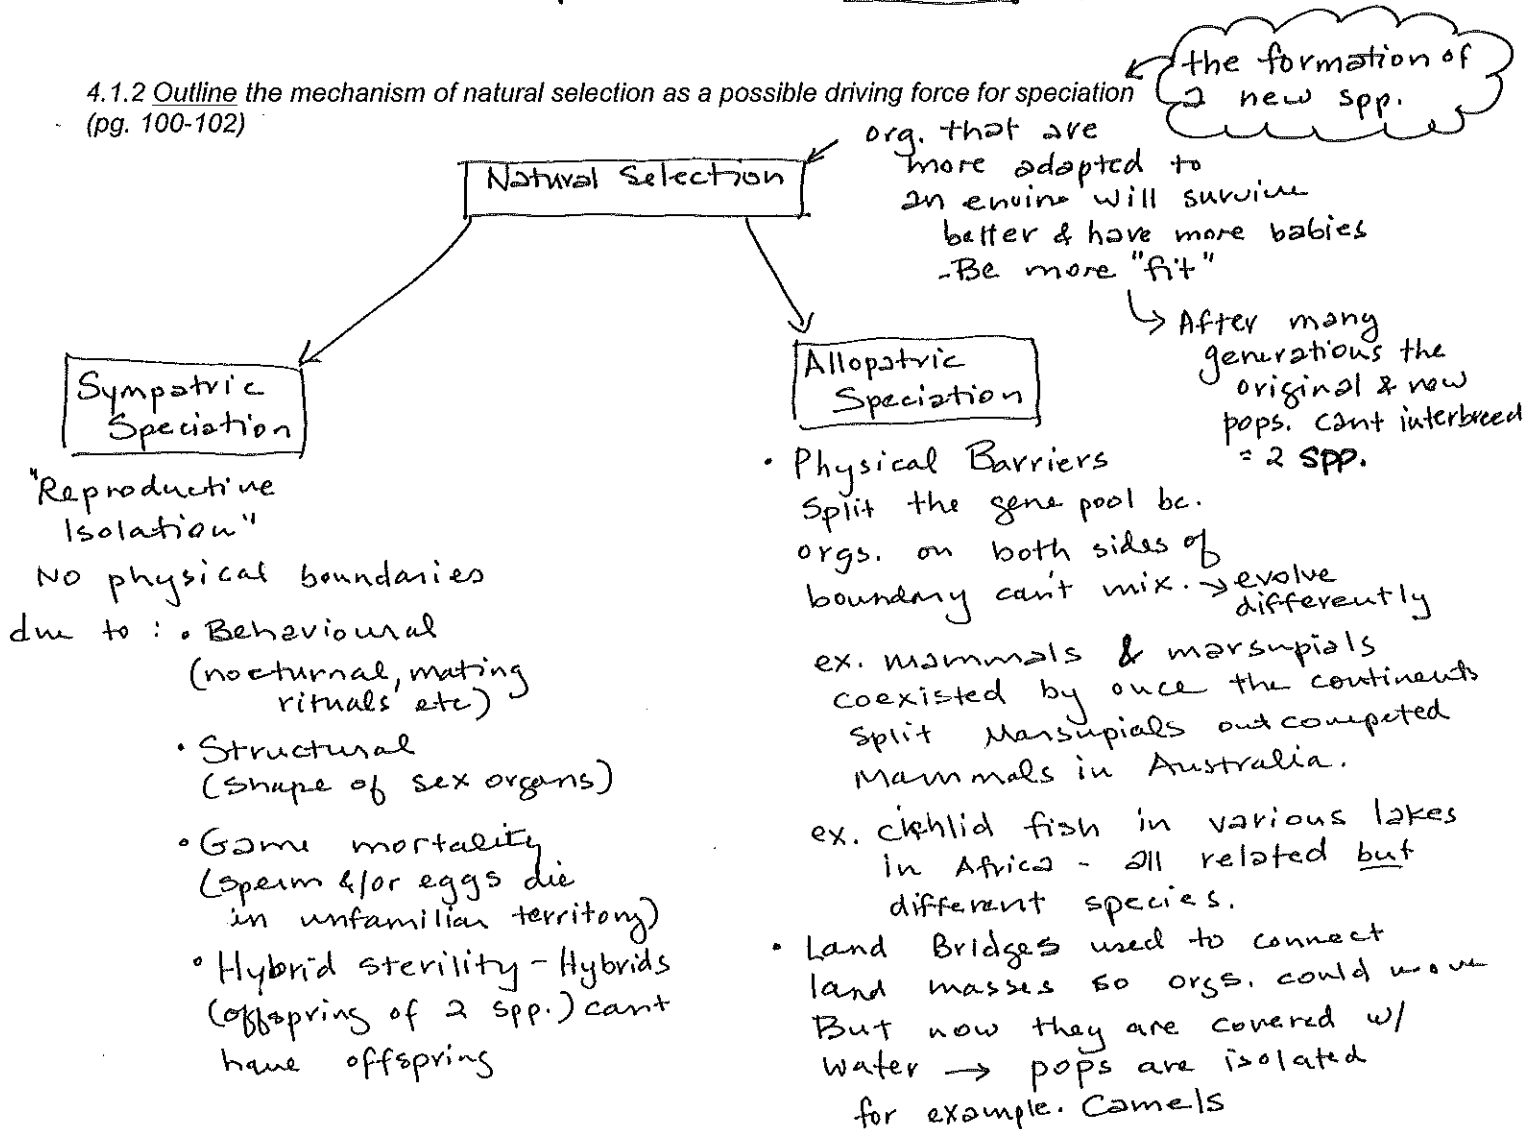 4.1.2 Outline the mechanism of natural selection as a possible driving force for speciation
(pg. 100-102)
the formation of
2 new spp.
Natural Selection
org. that are
more adapted to
an enviro will survive
better & have more babies
-Be more "fit"
After many
generations the
original & new
pops. cant interbreed
= 2 spp.
Sympatric
Speciation
"Reproductive
Isolation"
No physical boundaries
due to : • Behavioural
(nocturnal, mating
rituals etc)
• Structural
(shape of sex organs)
• Game mortality
(sperm &/or eggs die
in unfamiliar territory)
• Hybrid sterility - Hybrids
(offspring of 2 spp.) cant
have offspring
Allopatric
Speciation
• Physical Barriers
Split the gene pool bc.
orgs. on both sides of
boundary can't mix. → evolve
differently
ex. mammals & marsupials
coexisted by once the continents
split Marsupials outcompeted
Mammals in Australia.
ex. cichlid fish in various lakes
in Africa - all related but
different species.
• Land Bridges used to connect
land masses so orgs. could move
But now they are covered w/
water → pops are isolated
for example. Camels